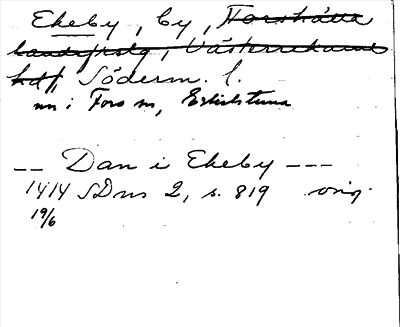 Ekeby, by, Forshälla
landsfrslg, Västerrekarne
hd, Söderm. l.
nu i Fors sn, Eskilstuna
-- Dan i Ekeby ---
1414 SDns 2, s. 819 orig.
19/6